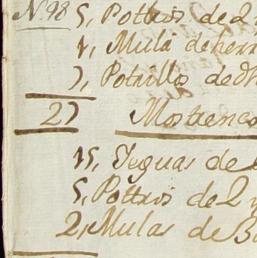 N. 98 5, Potros de 2
1, Mula de herr
7, Potrillos de
27 Mostrencos
15, Yeguas de
5, Potros de 2 y
2, Mulas de